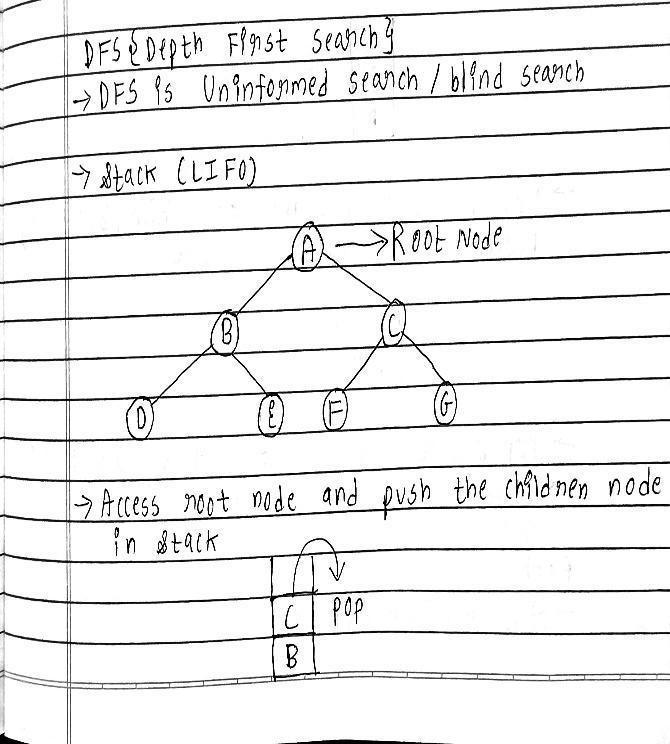 DFS {Depth First Search}
→ DFS is Uninformed search / blind search
→ Stack (LIFO)
A → Root Node
B C
D E F G
→ Access root node and push the children node
in stack
C POP
B